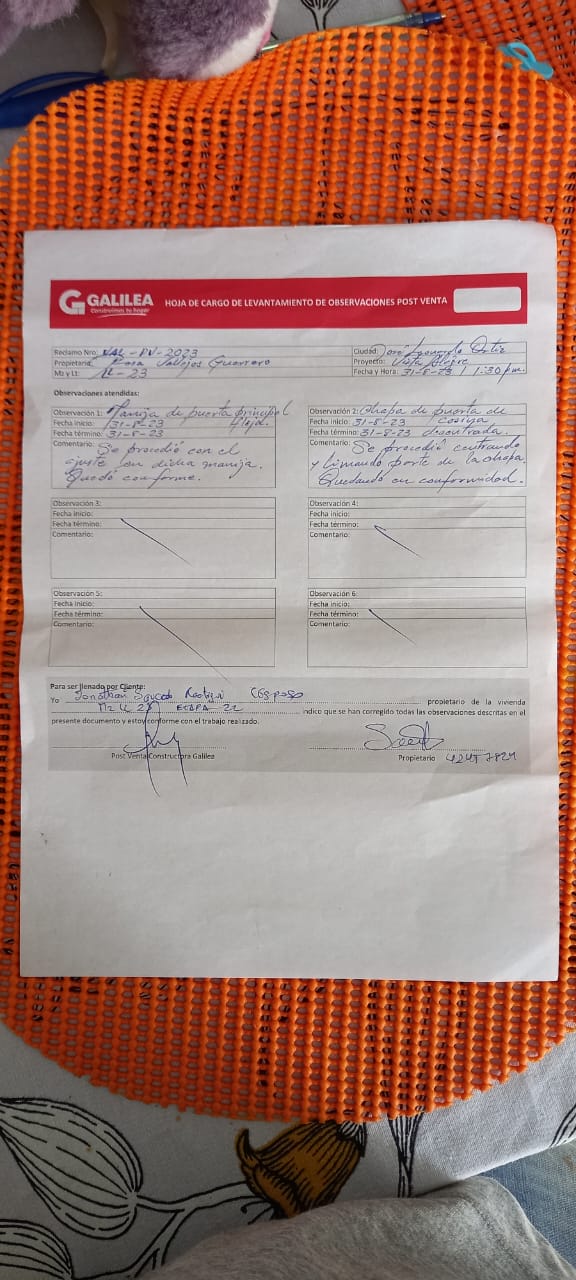 GALILEA
Construimos tu hogar
HOJA DE CARGO DE LEVANTAMIENTO DE OBSERVACIONES POST VENTA
Reclamo Nro: VAL-PV-2023
Propietario: Rosa Vallejos Guerrero
Mz y Lt: LL-23
Ciudad: José Leonardo Ortiz
Proyecto: Vista Alegre
Fecha y Hora: 31-8-23 / 1:30 p.m.
Observaciones atendidas:
Observación 1: Manija de puerta principal
Fecha inicio: 31-8-23 floja.
Fecha término: 31-8-23
Comentario: Se procedió con el
ajuste con dicha manija.
Quedó conforme.
Observación 2: Chapa de puerta de
Fecha inicio: 31-8-23 cocina
Fecha término: 31-8-23 descentrada.
Comentario: Se procedió centrando
y limando parte de la chapa.
Quedando en conformidad.
Observación 3:
Fecha inicio:
Fecha término:
Comentario:
Observación 4:
Fecha inicio:
Fecha término:
Comentario:
Observación 5:
Fecha inicio:
Fecha término:
Comentario:
Observación 6:
Fecha inicio:
Fecha término:
Comentario:
Para ser llenado por Cliente:
Yo Jonathan propietario de la vivienda
Mz LL 23 ETAPA indico que se han corregido todas las observaciones descritas en el
presente documento y estoy conforme con el trabajo realizado.
Post Venta Constructora Galilea
Propietario